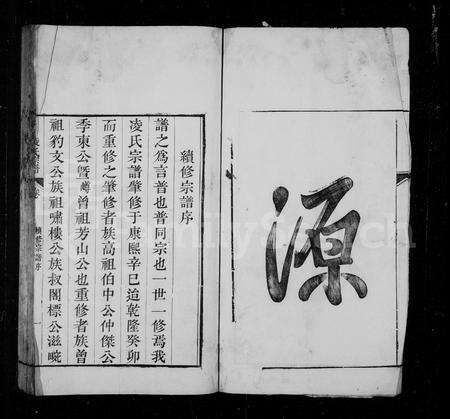 源
續修宗譜序
譜之為言普也普同宗也一世一修焉我
凌氏宗譜肇修于康熙辛巳迨乾隆癸卯
而重修之肇修者族高祖伯中公仲傑公
季東公暨曾祖芳山公也重修者族曾
祖豹文公族祖嘯樓公族叔閣標公滋畹
續修宗譜序